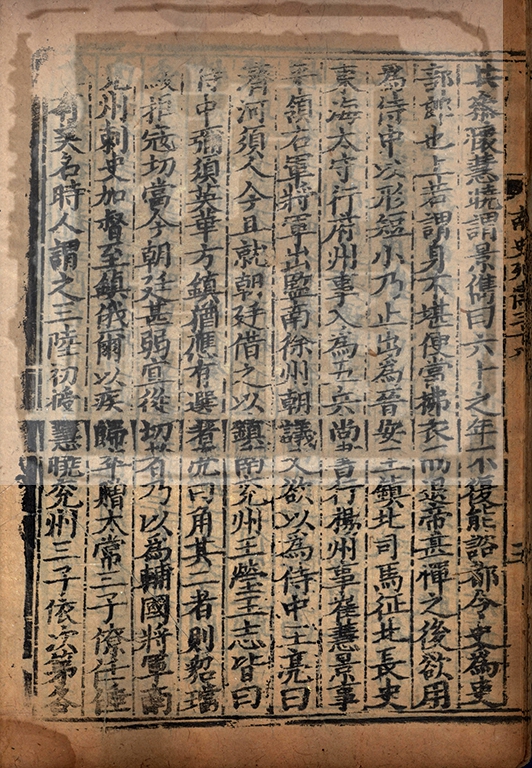 共參懷慧曉謂景儁曰六十之年不復能諮都令史為吏
部郎也上若謂身不堪便當拂衣而退帝甚憚之後欲用
為侍中以形短小乃止出為晉安王鎮北司馬征北長史
東海太守行府州事入為五兵尚書行楊州事崔慧景事
平領右軍將軍出監南徐州朝議又欲以為侍中王亮曰
濟河須人今且就朝廷借之以鎮南兗州王瑩王志皆曰
侍中彌須英華方鎮猶應有選者亮曰角其二者則貂璫
緩拒寇切當今朝廷甚弱宜從切者乃以為輔國將軍南
兗州刺史加督至鎮俄爾以疾歸卒贈太常三子僚任倕
有美名時人謂之三陸初授慧曉兗州三子依次第各